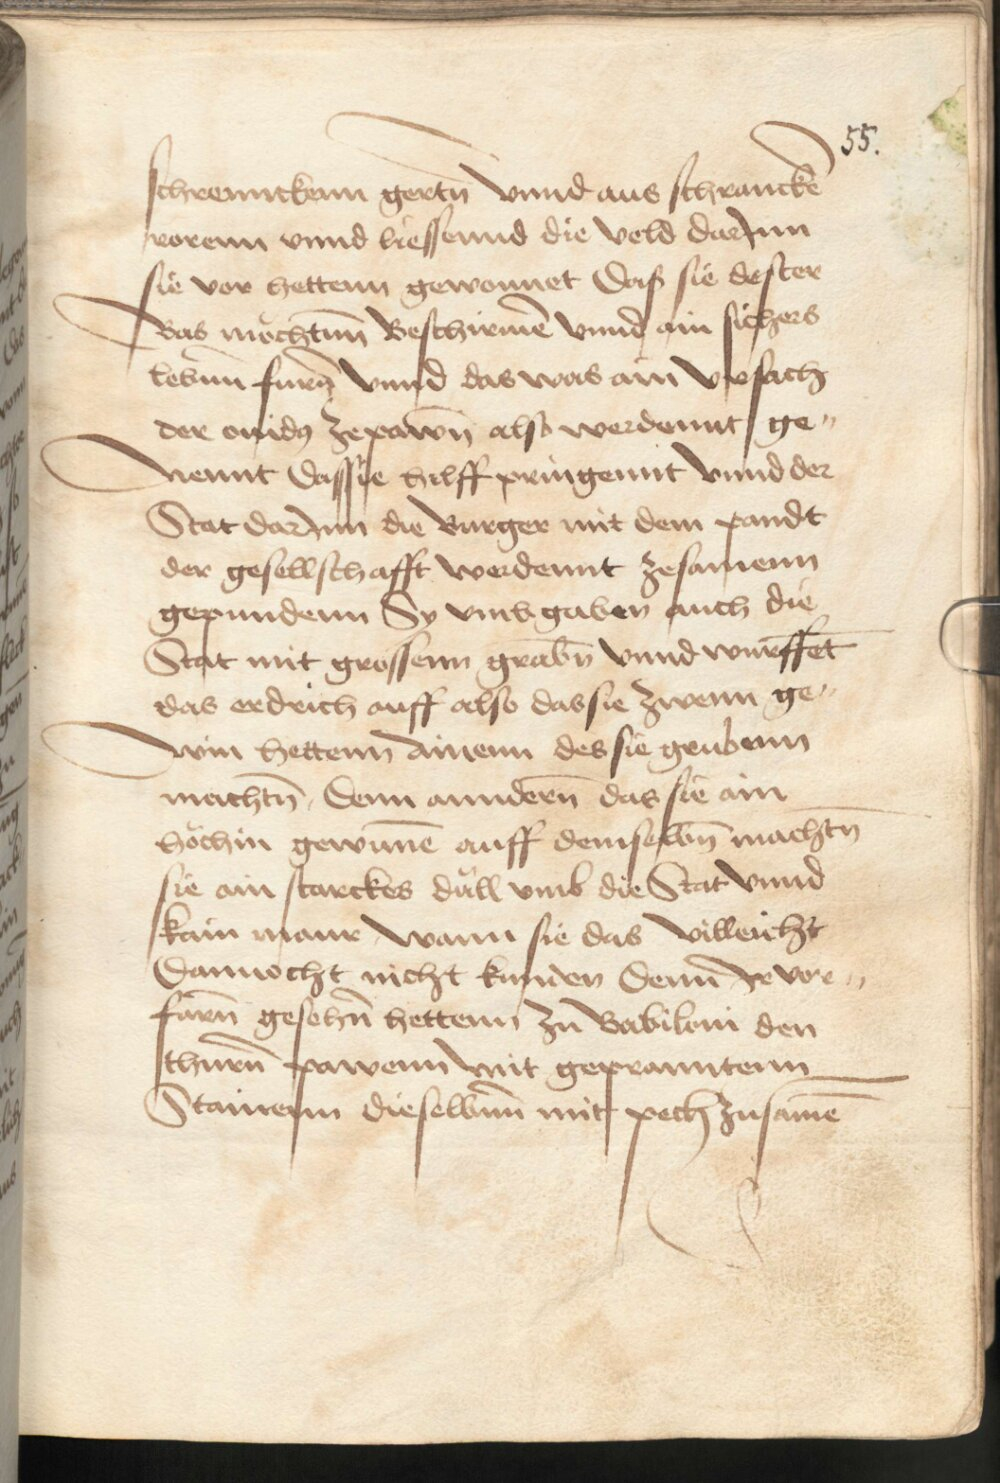 55.
schrennckenn gertñ vnnd aus schranckē
rorenn vnnd liessennd die veld darInn
sie vor hettenn gewonnet Das sie dester
Bas möchtnn Beschirmē vnnd ain sichers
lebnn furñ vnnd das was ain vrsach
der onid9 zepawñ also werdennt ge„
nennt Das sie hilff pringennt vnnd der
Stat darInn die Burger mit dem pandt
der gesellschafft werdennt zesamenn
gepundenn Sy vmbgaben auch die
Stat mit grossenn grabñ vnnd wurffet
das erdrich auff also das sie zwenn ge„
win hettenn Ainenn des sie grubenn
machtñ, Denn anndern̄ das sie ain
höchin gewunnē auff demselbñ machtñ
sie ain starckes düll vmb die Stat vnnd
kain maur Wann sie das villeicht
Dannocht nicht kunden Denn Ir vor„
farñ gesehñ hettenn zu Babiloni den
thurñ pawenn mit geprannttenn
Stainenn dieselbnn mit pech zusamē